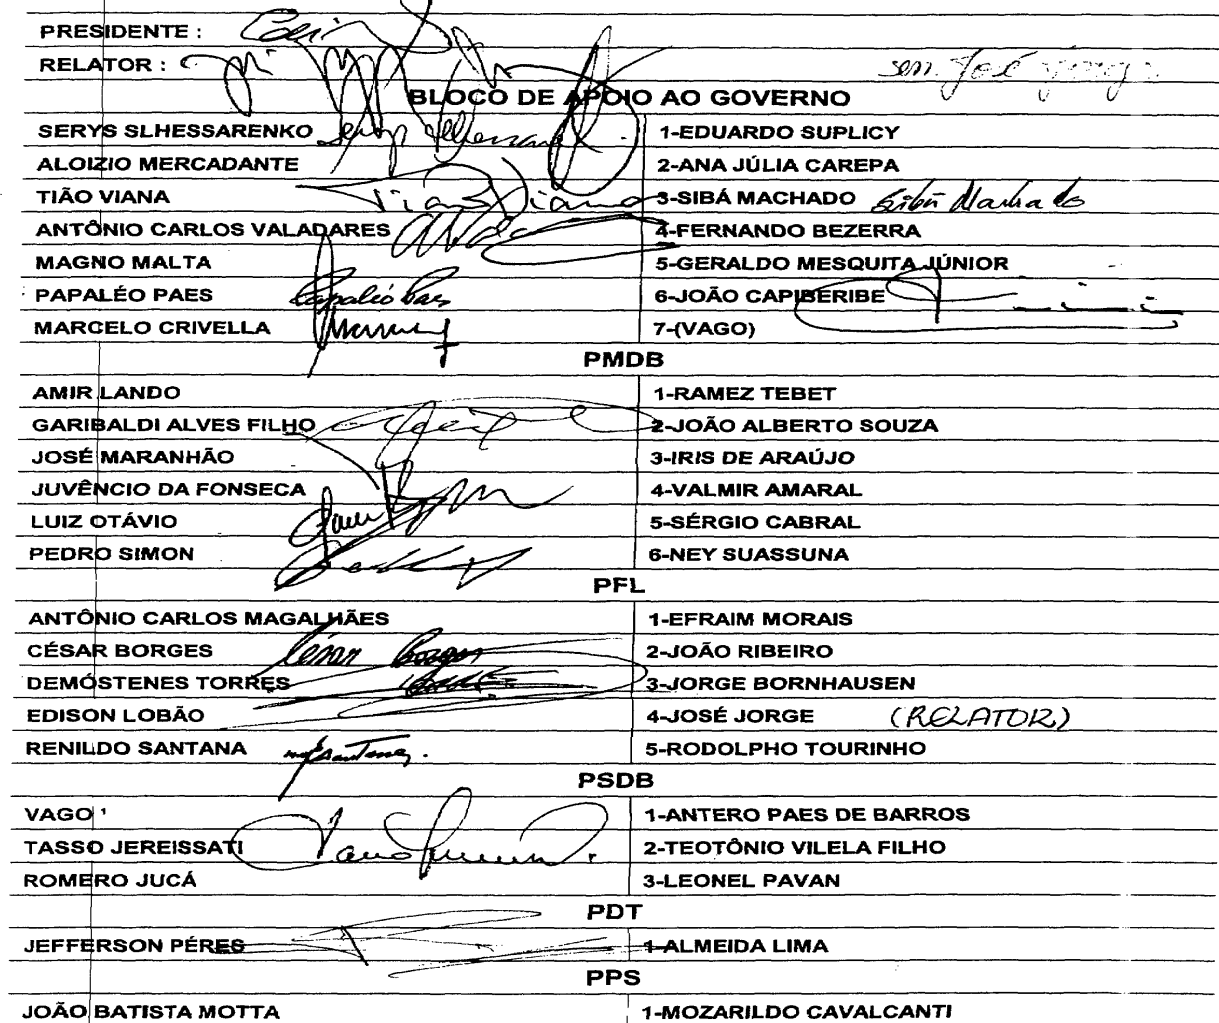 PRESIDENTE :
RELATOR : sen. José Jorge
BLOCO DE APOIO AO GOVERNO
SERYS SLHESSARENKO 1-EDUARDO SUPLICY
ALOIZIO MERCADANTE 2-ANA JÚLIA CAREPA
TIÃO VIANA Tião Viana 3-SIBÁ MACHADO Sibá Machado
ANTÔNIO CARLOS VALADARES 4-FERNANDO BEZERRA
MAGNO MALTA 5-GERALDO MESQUITA JÚNIOR
PAPALÉO PAES Papaléo Paes 6-JOÃO CAPIBERIBE
MARCELO CRIVELLA 7-(VAGO)
PMDB
AMIR LANDO 1-RAMEZ TEBET
GARIBALDI ALVES FILHO 2-JOÃO ALBERTO SOUZA
JOSÉ MARANHÃO 3-IRIS DE ARAÚJO
JUVÊNCIO DA FONSECA 4-VALMIR AMARAL
LUIZ OTÁVIO 5-SÉRGIO CABRAL
PEDRO SIMON 6-NEY SUASSUNA
PFL
ANTÔNIO CARLOS MAGALHÃES 1-EFRAIM MORAIS
CÉSAR BORGES César Borges 2-JOÃO RIBEIRO
DEMÓSTENES TORRES 3-JORGE BORNHAUSEN
EDISON LOBÃO 4-JOSÉ JORGE (RELATOR)
RENILDO SANTANA 5-RODOLPHO TOURINHO
PSDB
VAGO 1-ANTERO PAES DE BARROS
TASSO JEREISSATI 2-TEOTÔNIO VILELA FILHO
ROMERO JUCÁ 3-LEONEL PAVAN
PDT
JEFFERSON PÉRES 1-ALMEIDA LIMA
PPS
JOÃO BATISTA MOTTA 1-MOZARILDO CAVALCANTI